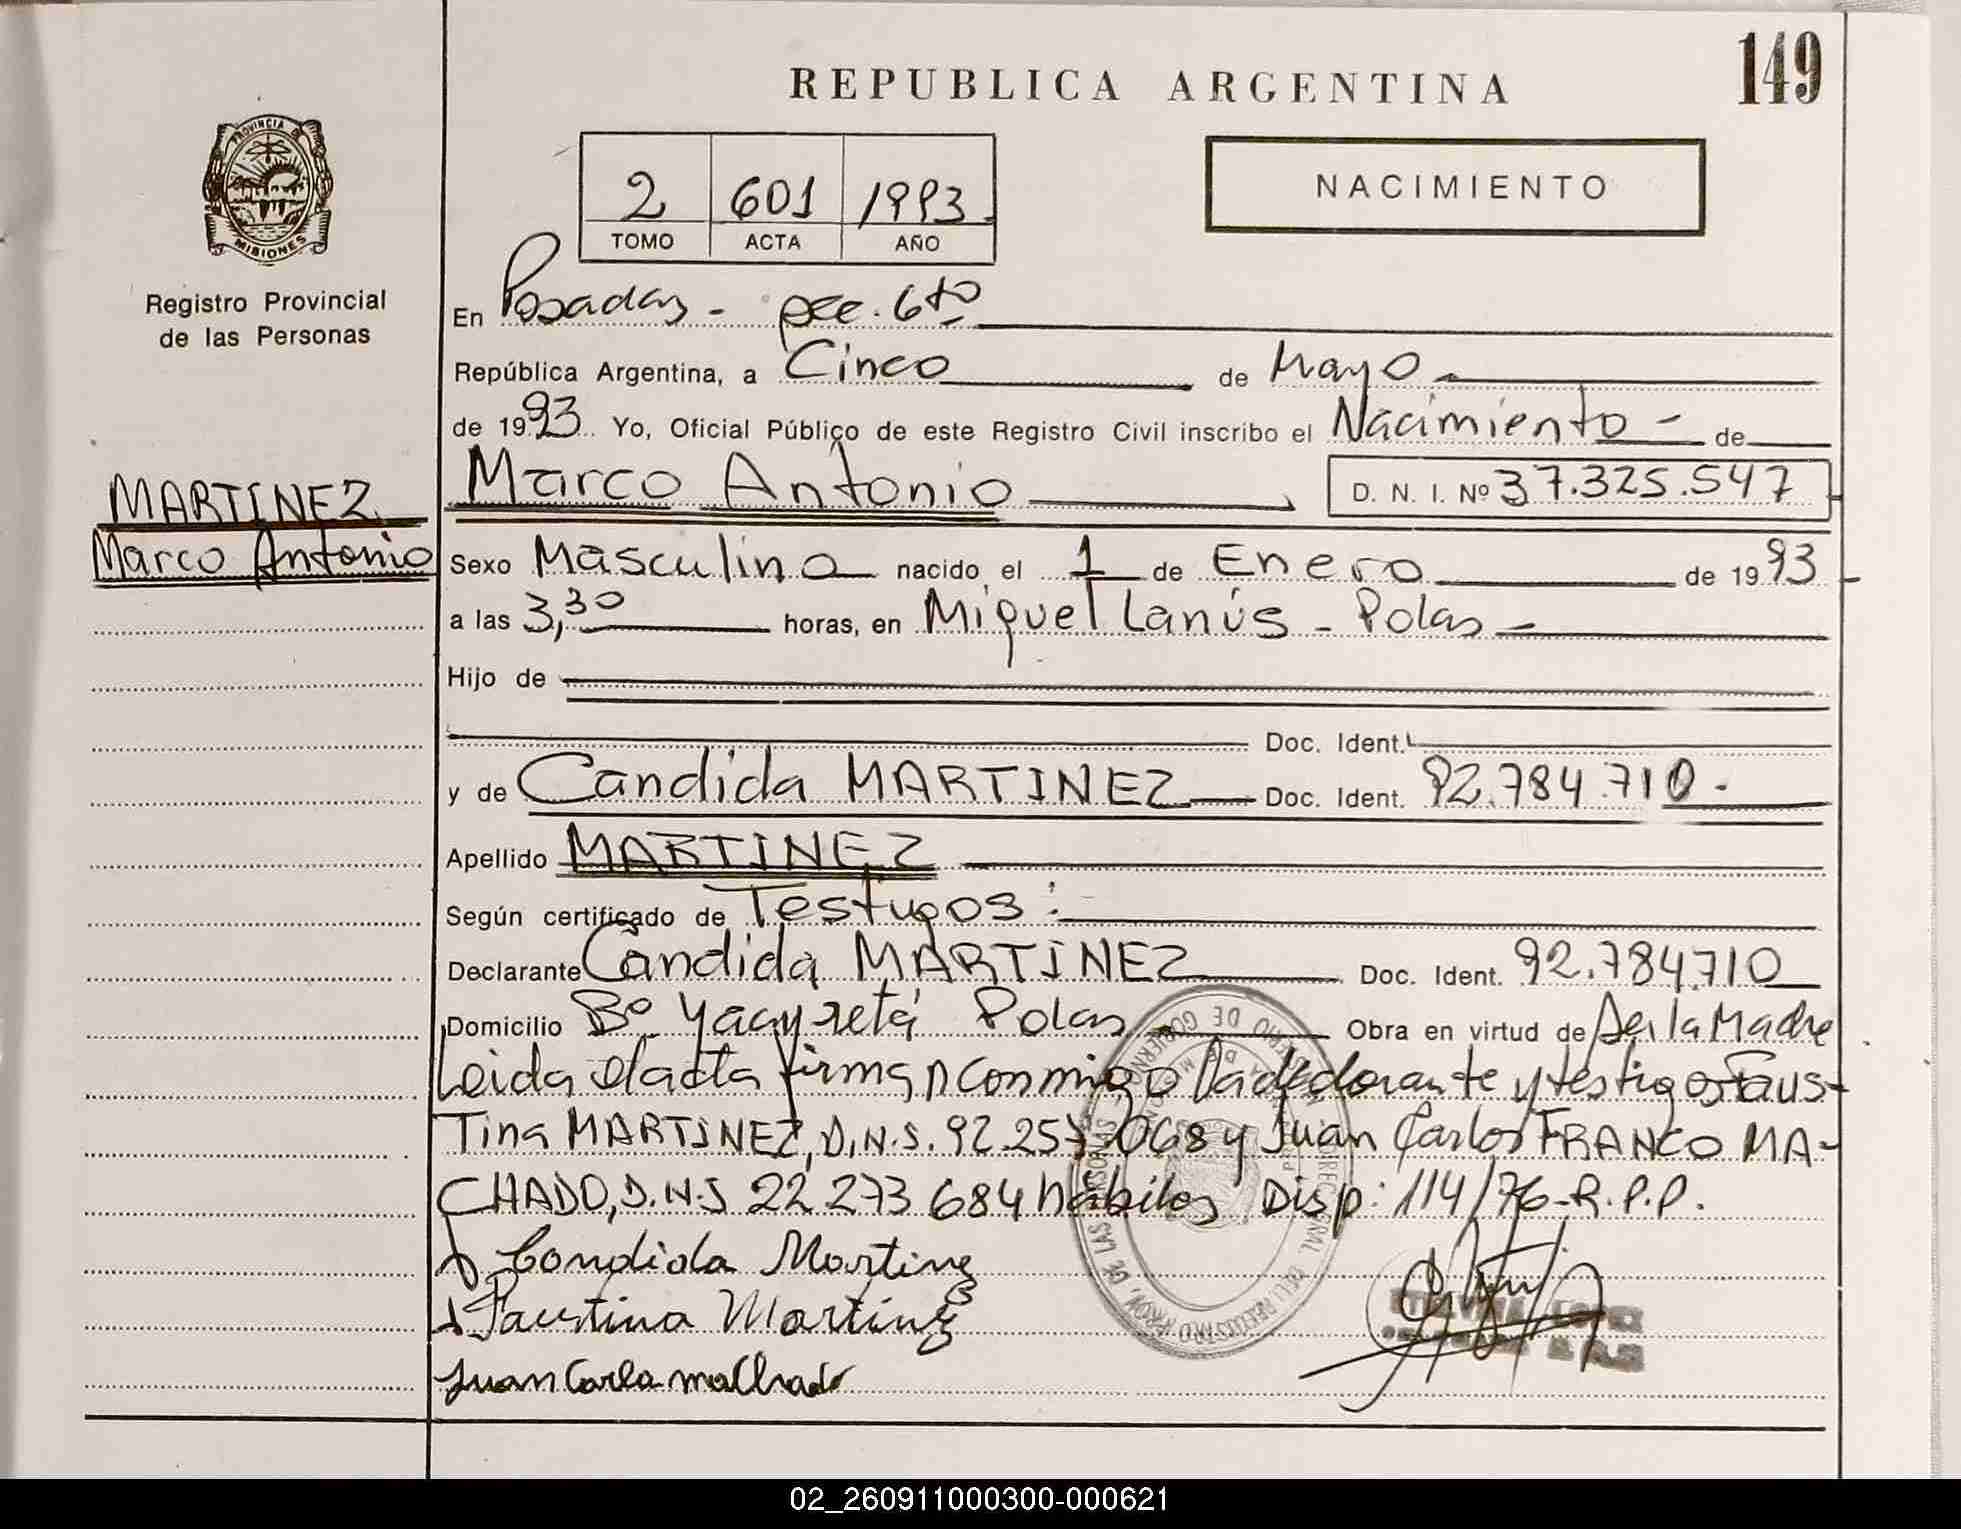 REPUBLICA ARGENTINA
149
PROVINCIA DE
MISIONES
Registro Provincial
de las Personas
2 601 1993
TOMO ACTA AÑO
NACIMIENTO
En Posadas - 6to
República Argentina, a Cinco de Mayo
de 1993. Yo, Oficial Público de este Registro Civil inscribo el Nacimiento - de
MARTINEZ
Marco Antonio
Marco Antonio D. N. I. Nº 37.325.547
Sexo Masculino nacido el 1 de Enero de 1993
a las 3,30 horas, en Miguel Lanús - Pdas -
Hijo de
Doc. Ident.
y de Candida MARTINEZ Doc. Ident. 92.784.710.
Apellido MARTINEZ
Según certificado de Testigos:
Declarante Candida MARTINEZ Doc. Ident. 92.784.710
Domicilio Bº Yacyretá Pdas Obra en virtud de Ser la Madre
Leida el acta firman conmigo la declarante y testigos Faus-
tina MARTINEZ, D.N.I. 92.257.068 y Juan Carlos FRANCO MA-
CHADO, D.N.I 22.273.684 hábiles Disp: 114/76-R.P.P.
Candida Martinez
Faustina Martinez
Juan Carlo machado
02_260911000300-000621